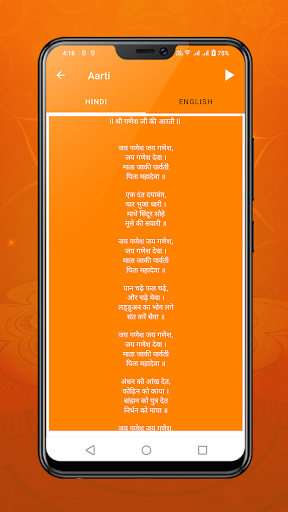 4:16
Aarti
HINDI
ENGLISH
|| श्री गणेश जी की आरती ||
जय गणेश जय गणेश,
जय गणेश देवा ।
माता जाकी पार्वती
पिता महादेवा ॥
एक दंत दयावंत,
चार भुजा धारी ।
माथे सिंदूर सोहे
मूसे की सवारी ॥
जय गणेश जय गणेश,
जय गणेश देवा ।
माता जाकी पार्वती
पिता महादेवा ॥
पान चढ़े फल चढ़े,
और चढ़े मेवा ।
लड्डुअन का भोग लगे
संत करें सेवा ॥
जय गणेश जय गणेश,
जय गणेश देवा ।
माता जाकी पार्वती
पिता महादेवा ॥
अंधन को आंख देत,
कोढ़िन को काया ।
बांझन को पुत्र देत
निर्धन को माया ॥
जय गणेश जय गणेश,